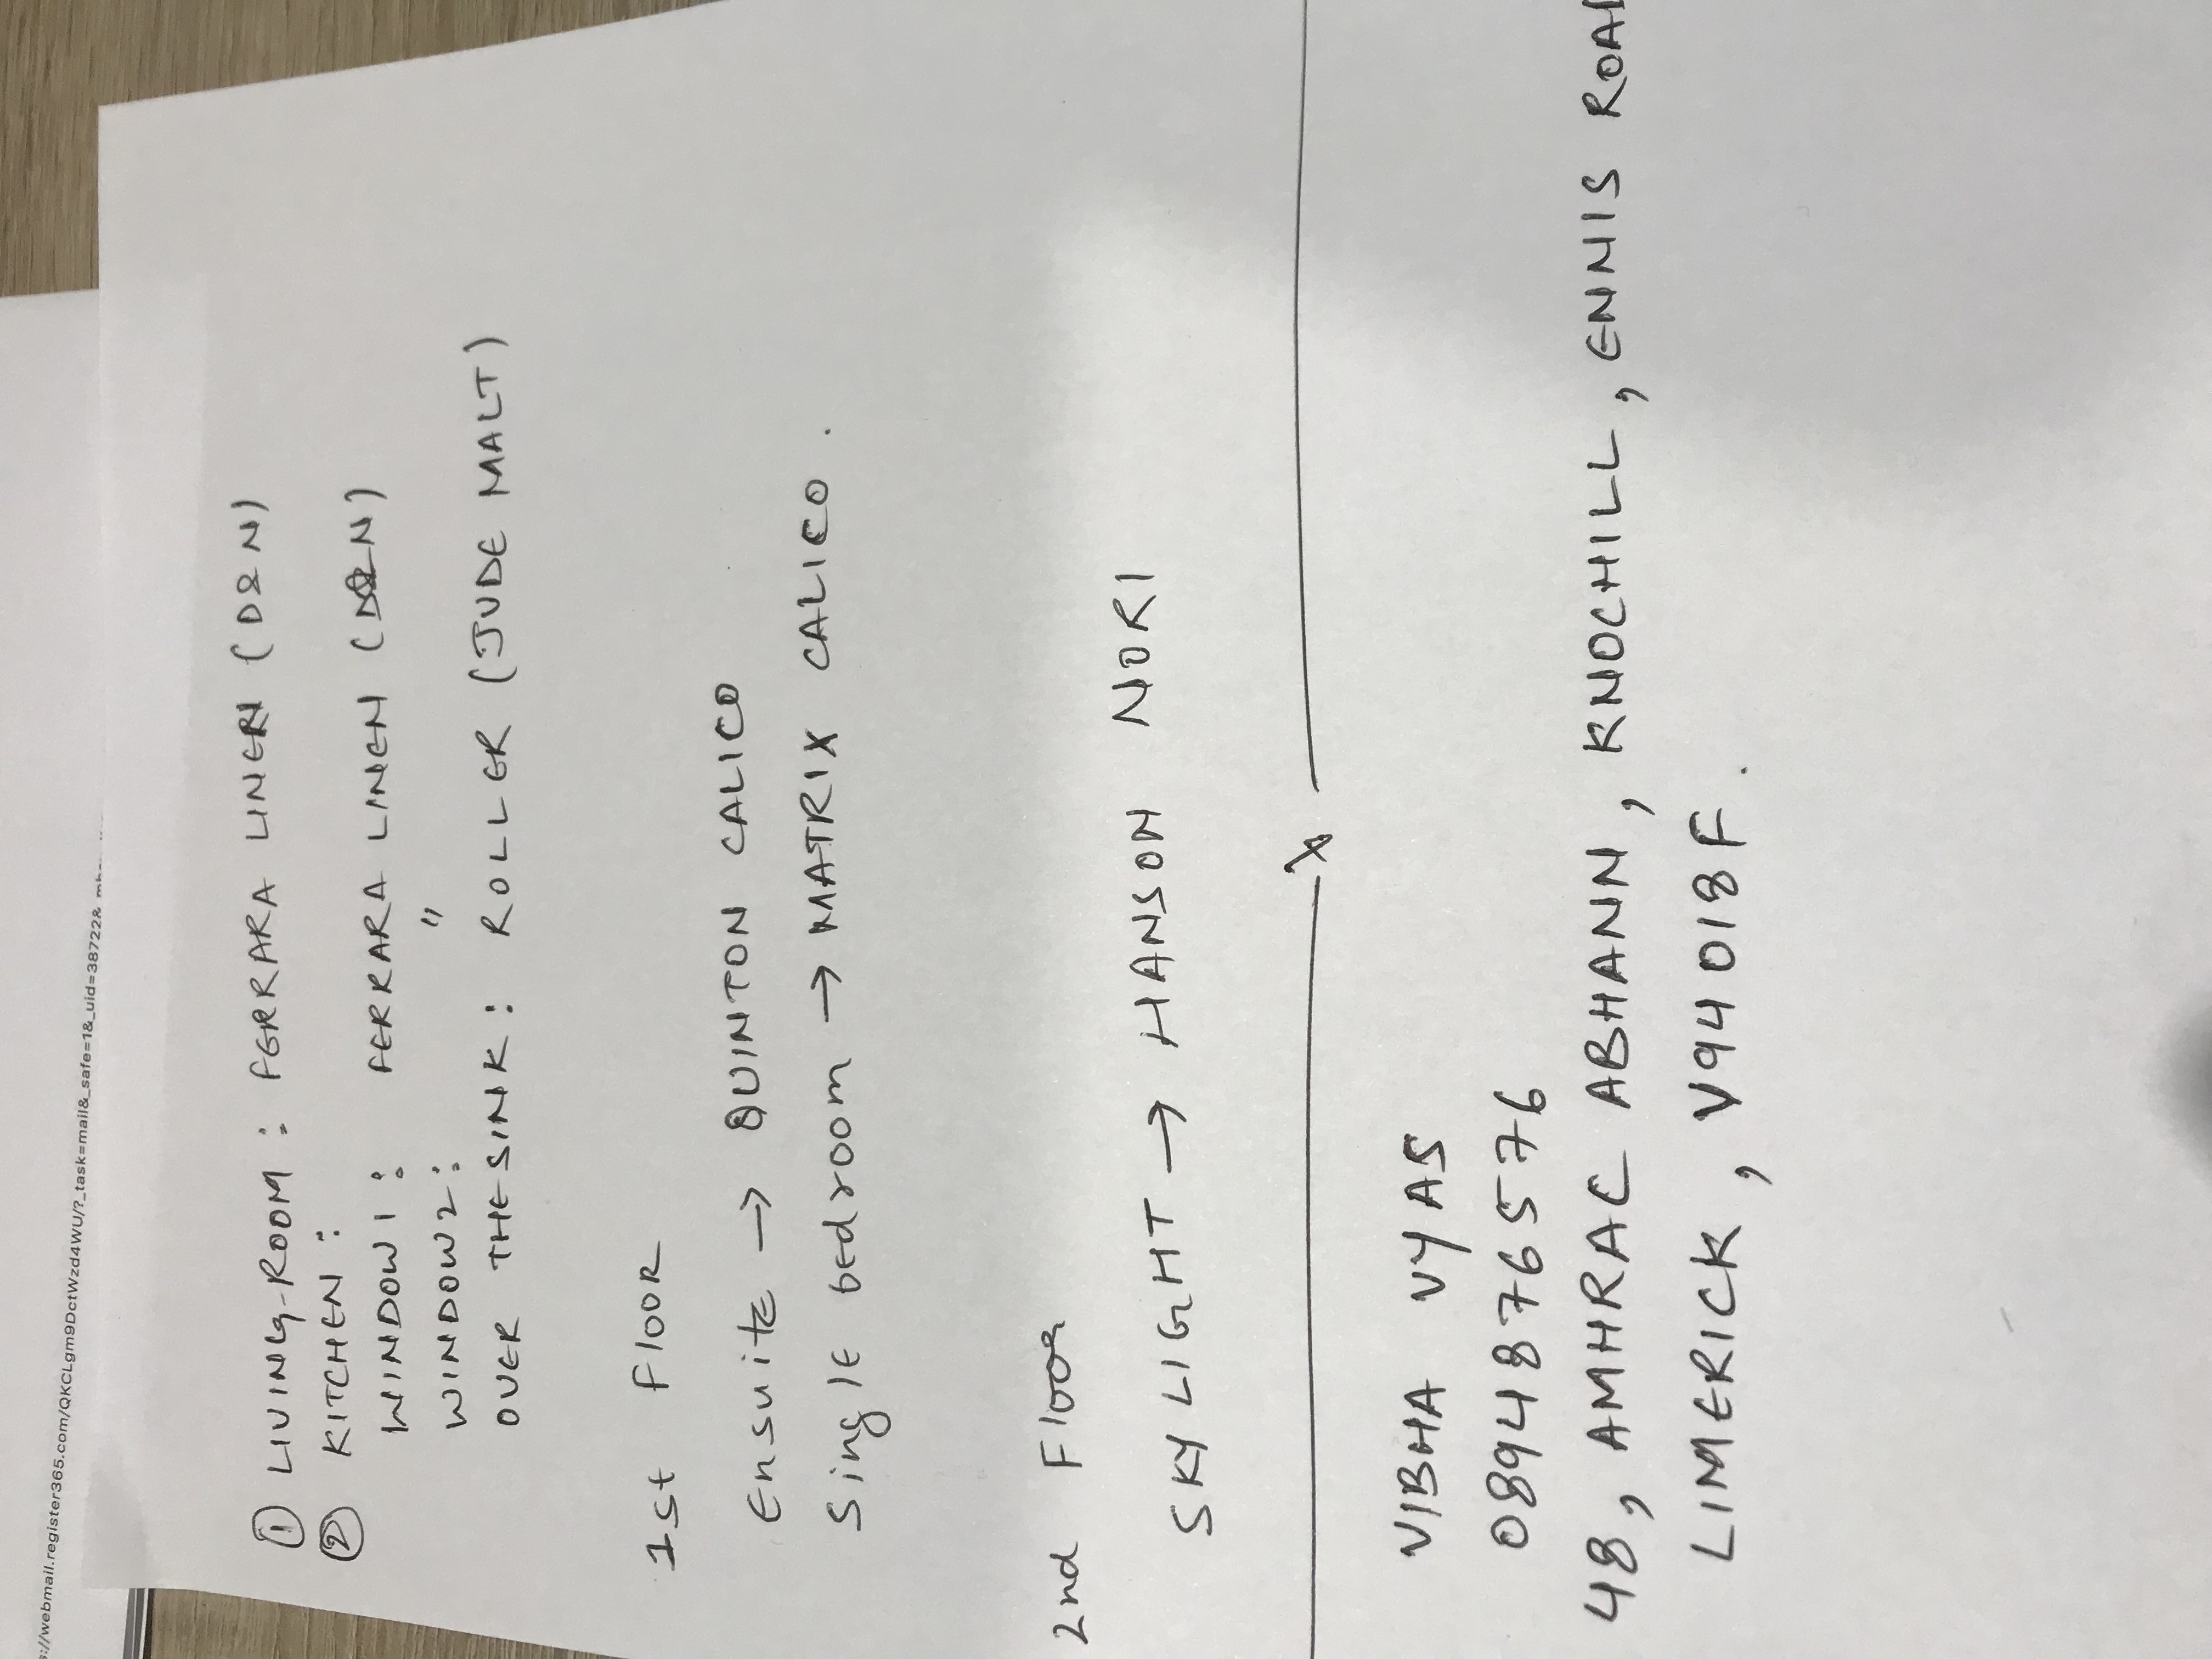 s://webmail.register365.com/QKCLgm9DctWzd4WU/?_task=mail&_safe=1&_uid=38722&
① LIVING-ROOM : FERRARA LINEN (D&N)
② KITCHEN :
WINDOW 1 : FERRARA LINEN (D&N)
WINDOW 2 : "
OVER THE SINK : ROLLER (JUDE MALT)
1st FlOOR
Ensuite → QUINTON CALICO
Single bedroom → MATRIX CALICO.
2nd Floor
SKYLIGHT → HANSON NORI
x
VIBHA VYAS
0894876576
48, AMHRAC ABHANN, KNOCHILL, ENNIS ROAD
LIMERICK, V94018F.